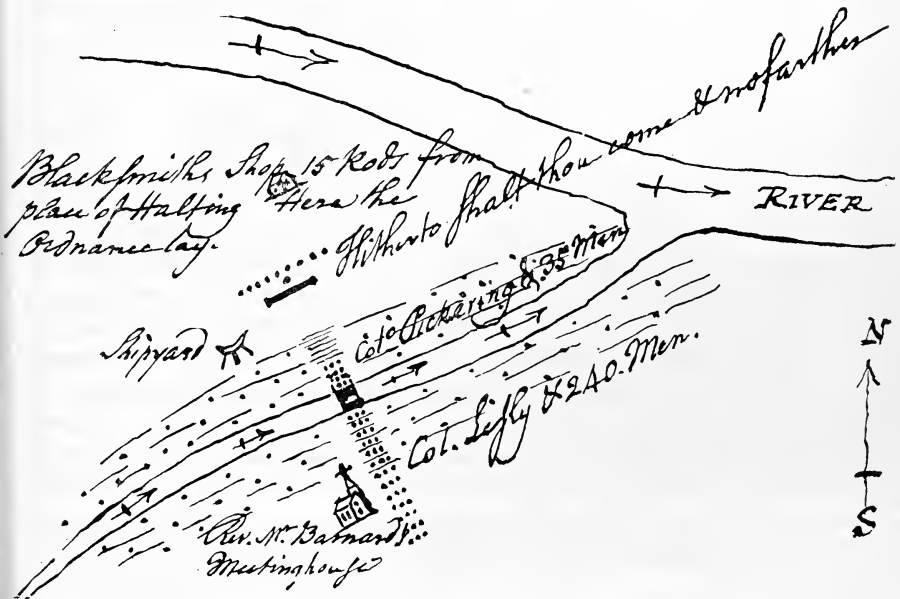 Blacksmiths Shop 15 Rods from
place of Halting Here the
Ordnance lay.
Hitherto shalt thou come & no farther
RIVER
Shipyard
Colo Pickering & 35 Men
Col. Lesly & 240. Men.
Rev. Mr. Barnards
Meetinghouse
N
S